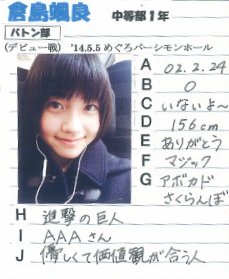 倉島颯良 中等部1年
バトン部
(デビュー戦) '14.5.5 めぐろパーシモンホール
A 02.2.24
B O
C いないよ〜
D 156cm
E ありがとう
F マジック
G アボカド
さくらんぼ
H 進撃の巨人
I AAAさん
J 優しくて価値観が合う人